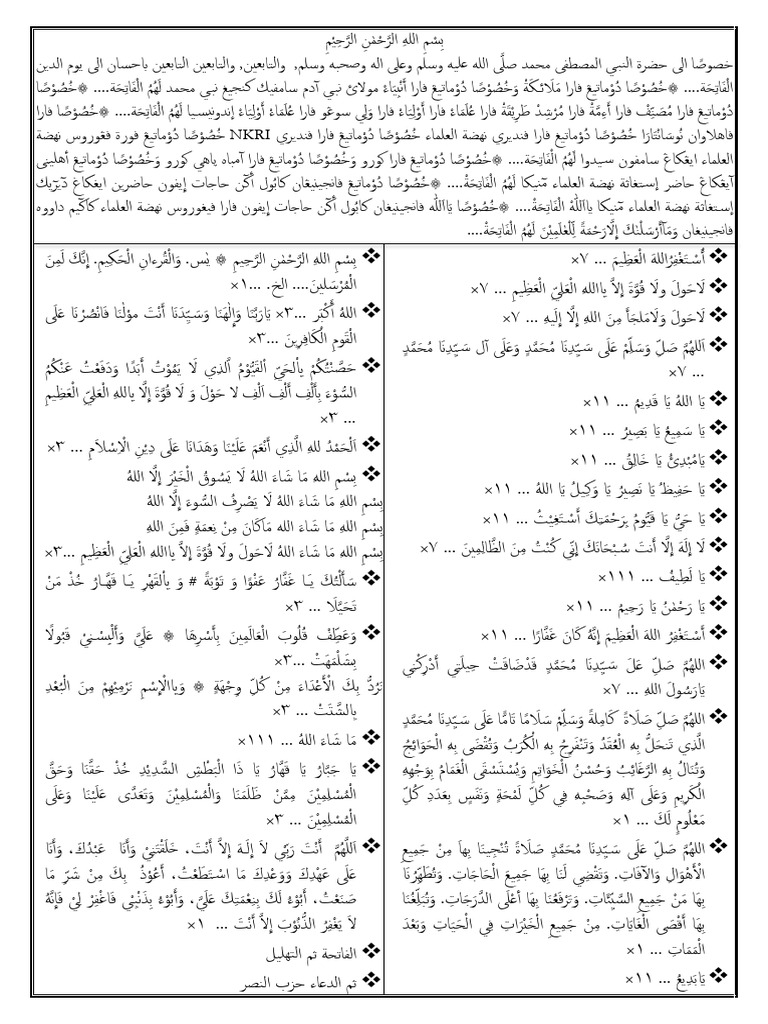 بِسْمِ اللهِ الرَّحْمٰنِ الرَّحِيْمِ
خصوصًا الى حضرة النبي المصطفى محمد صلَّى الله عليه وسلم وعلى اله وصحبه وسلم, والتابعين, والتابعين التابعين باحسان الى يوم الدين
الْفَاتِحَة.... ۞خُصُوْصًا دُوْماتيغ فارا مَلاَئكَةْ وَخُصُوْصًا دُوْماتيغ فارا أَنْبِيَاءْ مولائ نبي آدم سامفيك كنجيغ نبي محمد لَهُمُ الْفَاتِحَة.... ۞خُصُوْصًا
دُوْماتيغ فارا مُصَنِّفْ فارا أَءِمَّةْ فارا مُرْشِدْ طَرِيْقَةْ فارا عُلَمَاءْ فارا أَوْلِيَاءْ فارا وَلِي سوعَو فارا عُلَمَاءْ أَوْلِيَاءْ إندونيسيا لَهُمُ الْفَاتِحَة.... ۞خُصُوْصًا فارا
فاهلاوان نُوسَانْتَارَا خُصُوْصًا دُوْماتيغ فارا فنديري نهضة العلماء خُصُوْصًا دُوْماتيغ فارا فنديري NKRI خُصُوْصًا دُوْماتيغ فورة فغوروس نهضة
العلماء ايغكاغ سامفون سيدوا لَهُمُ الْفَاتِحَة.... ۞خُصُوْصًا دُوْماتيغ فارا كورو وَخُصُوْصًا دُوْماتيغ فارا آمباه ياهي كورو وَخُصُوْصًا دُوْماتيغ أهليني
آيغكاغ حاضر إستغاثة نهضة العلماء مّنيكا لَهُمُ الْفَاتِحَةْ.... ۞خُصُوْصًا دُوْماتيغ فانجينيغان كابُول أكّن حاجات إيفون حاضرين ايغكاغ دَيرَيك
إستغاثة نهضة العلماء مّنيكا ياَاللّٰهْ الْفَاتِحَةْ.... ۞خُصُوْصًا يَاَاللّٰه فانجينيغان كابُول أكّن حاجات إيفون فارا فيغوروس نهضة العلماء كاكّيم داووه
فانجينيغان وَمَآأَرْسَلْنٰكَ اِلَّارَحْمَةً لِّلْعٰلَمِيْنَ لَهُمُ الْفَاتِحَةْ....
❖ أَسْتَغْفِرُاللهَ الْعَظِيمَ ... ٧×
❖ لاَحَولَ ولَا قُوَّةَ إِلاَّ بِاللهِ الْعَلِيِّ الْعَظِيمِ ... ٧×
❖ لاَحَولَ وَلاَمَلجَأَ مِنَ اللهِ إِلَّا إِلَيهِ ... ٧×
❖ اَللّٰهُمَّ صَلِّ وَسَلِّمْ عَلَى سَيِّدِنَا مُحَمَّدٍ وَعَلَى آل سَيِّدِنَا مُحَمَّدٍ
... ٧×
❖ يَا اللهُ يَا قَدِيمُ ... ١١×
❖ يَا سَمِيعُ يَا بَصِيرُ ... ١١×
❖ يَامُبْدِئُ يَا خَالِقُ ... ١١×
❖ يَا حَفِيظُ يَا نَصِيرُ يَا وَكِيلُ يَا اللهُ ... ١١×
❖ يَا حَيُّ يَا قَيُّومُ بِرَحْمَتِكَ أَسْتَغِيْثُ ... ١١×
❖ لَا إِلَهَ إِلَّا أَنتَ سُبْحَانَكَ إِنِّي كُنْتُ مِنَ الظَّالِمِينَ ... ٧×
❖ يَا لَطِيفُ ... ١١١×
❖ يَا رَحْمٰنُ يَا رَحِيمُ ... ١١×
❖ أَسْتَغْفِرُ اللهَ الْعَظِيمَ إِنَّهُ كَانَ غَفَّارًا ... ١١×
❖ اللهُمَّ صَلِّ عَلَ سَيِّدِنَا مُحَمَّدٍ قَدْضَاقَتْ حِيلَتِي أَدْرِكْنِي
يَارَسُولَ اللهِ ... ٧×
❖ اللهُمَّ صَلِّ صَلَاةً كَامِلةً وَسَلِّمْ سَلَامًا تَامًّا عَلَى سَيِّدِنَا مُحَمَّدٍ
الَّذِي تَنحَلُّ بِهِ الْعُقَدُ وَتَنْفَرِجُ بِهِ الْكُرَبُ وَتُقْضَى بِهِ الْحَوَائِجُ
وَتُنَالُ بِهِ الرَّغَائِبُ وَحُسْنُ الْخَوَاتِمِ وَيُسْتَسْقَى الْغَمَامُ بِوَجْهِهِ
الْكَرِيمِ وَعَلَى آلِهِ وَصَحْبِهِ فِي كُلِّ لَمْحَةٍ وَنَفَسٍ بِعَدَدِ كُلِّ
مَعْلُومٍ لَكَ ... ١×
❖ اللهُمَّ صَلِّ عَلَى سَيِّدِنَا مُحَمَّدٍ صَلَاةً تُنْجِينَا بِهَا مِنْ جَمِيعِ
الْأَهْوَالِ وَالآفَاتِ. وَتَقْضِي لَنَا بِهَا جَمِيعَ الْحَاجَاتِ. وَتُطَهِّرُنَا
بِهَا مَنْ جَمِيعِ السَّيِّئَاتِ. وَتَرْفَعُنَا بِهَا أَعْلَى الدَّرَجَاتِ. وَتُبَلِّغُنَا
بِهَا أَقْصَى الْغَايَاتِ. مِنْ جَمِيعِ الْخَيْرَاتِ فِي الْحَيَاتِ وَبَعْدَ
الْمَمَاتِ ... ١×
❖ يَابَدِيعُ ... ١١×
❖ بِسْمِ اللهِ الرَّحْمٰنِ الرَّحِيمِ ۞ يٰس. وَالْقُرْءَانِ الْحَكِيمِ. إِنَّكَ لَمِنَ
الْمُرْسَلِينَ.... الخ. ...١×
❖ اللهُ أَكْبَر ...٣× يَارَبَّنَا وَإِلٰهَنَا وَسَيِّدَنَا أَنْتَ مَوْلٰنَا فَانْصُرْنَا عَلَى
الْقَومِ الْكَافِرِينَ ...٣×
❖ حَصَّنْتُكُمْ بِالحَيِّ القَيُّومُ الَّذِي لَا يَمُوْتُ أَبَدًا وَدَفَعْتُ عَنْكُمُ
السُّوْءَ بِأَلْفِ أَلْفِ اَلْفِ لا حَوْلَ وَ لَا قُوَّةَ إِلَّا بِاللهِ الْعَلِيِّ الْعَظِيمِ
... ٣×
❖ اَلْحَمْدُ للهِ الَّذِي أَنْعَمَ عَلَيْنَا وَهَدَانَا عَلَى دِيْنِ الْاِسْلاَمِ ... ٣×
❖ بِسْمِ اللهِ مَا شَاءَ اللهُ لَا يَسُوقُ الْخَيْرَ إِلَّا اللهُ
بِسْمِ اللهِ مَا شَاءَ اللهُ لَا يَصْرِفُ السُّوءَ إِلَّا اللهُ
بِسْمِ اللهِ مَا شَاءَ الله مَاكَانَ مِنْ نِعمَةٍ فَمِنَ اللهِ
بِسْمِ اللهِ مَا شَاءَ اللهُ لَاحَولَ ولَا قُوَّةَ إِلاَّ بِاللهِ الْعَلِيِّ الْعَظِيمِ ...٣×
❖ سَأَلْتُكَ يَا غَفَّارُ عَفْوًا وَ تَوْبَةً # وَ بِالْقَهْرِ يَا قَهَّارُ خُذْ مَنْ
تَحَيَّلَا ... ٣×
❖ وَعَطِّفْ قُلُوبَ الْعَالَمِينَ بِأَسْرِهَا ۞ عَلَيَّ وَأَلْبِسْنِيْ قَبُولًا
بِشَلْمَهَتْ ...٣×
تَرُدُّ بِكَ الْأَعْدَاءَ مِنْ كُلِّ وِجْهَةٍ ۞ وَبِالْإِسْمِ تَرْمِيْهِمْ مِنَ الْبُعْدِ
بِالشَّتَتْ ... ٣×
❖ مَا شَاءَ اللهُ ... ١١١×
❖ يَا جَبَّارُ يَا قَهَّارُ يَا ذَا الْبَطْشِ الشَّدِيْدِ خُذْ حَقَّنَا وَحَقَّ
الْمُسْلِمِيْنَ مِمَّنْ ظَلَمَنَا وَالْمُسْلِمِيْنَ وَتَعَدَّى عَلَيْنَا وَعَلَى
الْمُسْلِمِيْنَ ... ٣×
❖ اَللَّهُمَّ أَنْتَ رَبِّي لاَ إِلَهَ إِلاَّ أَنْتَ، خَلَقْتَنِيْ وَأَنَا عَبْدُكَ، وَأَنَا
عَلَى عَهْدِكَ وَوَعْدِكَ مَا اسْتَطَعْتُ، أَعُوْذُ بِكَ مِنْ شَرِّ مَا
صَنَعْتُ، أَبُوْءُ لَكَ بِنِعْمَتِكَ عَلَيَّ، وَأَبُوْءُ بِذَنْبِيْ فَاغْفِرْ لِيْ فَإِنَّهُ
لاَ يَغْفِرُ الذُّنُوْبَ إِلاَّ أَنْتَ ... ١×
❖ الفاتحة ثم التهليل
❖ ثم الدعاء حزب النصر